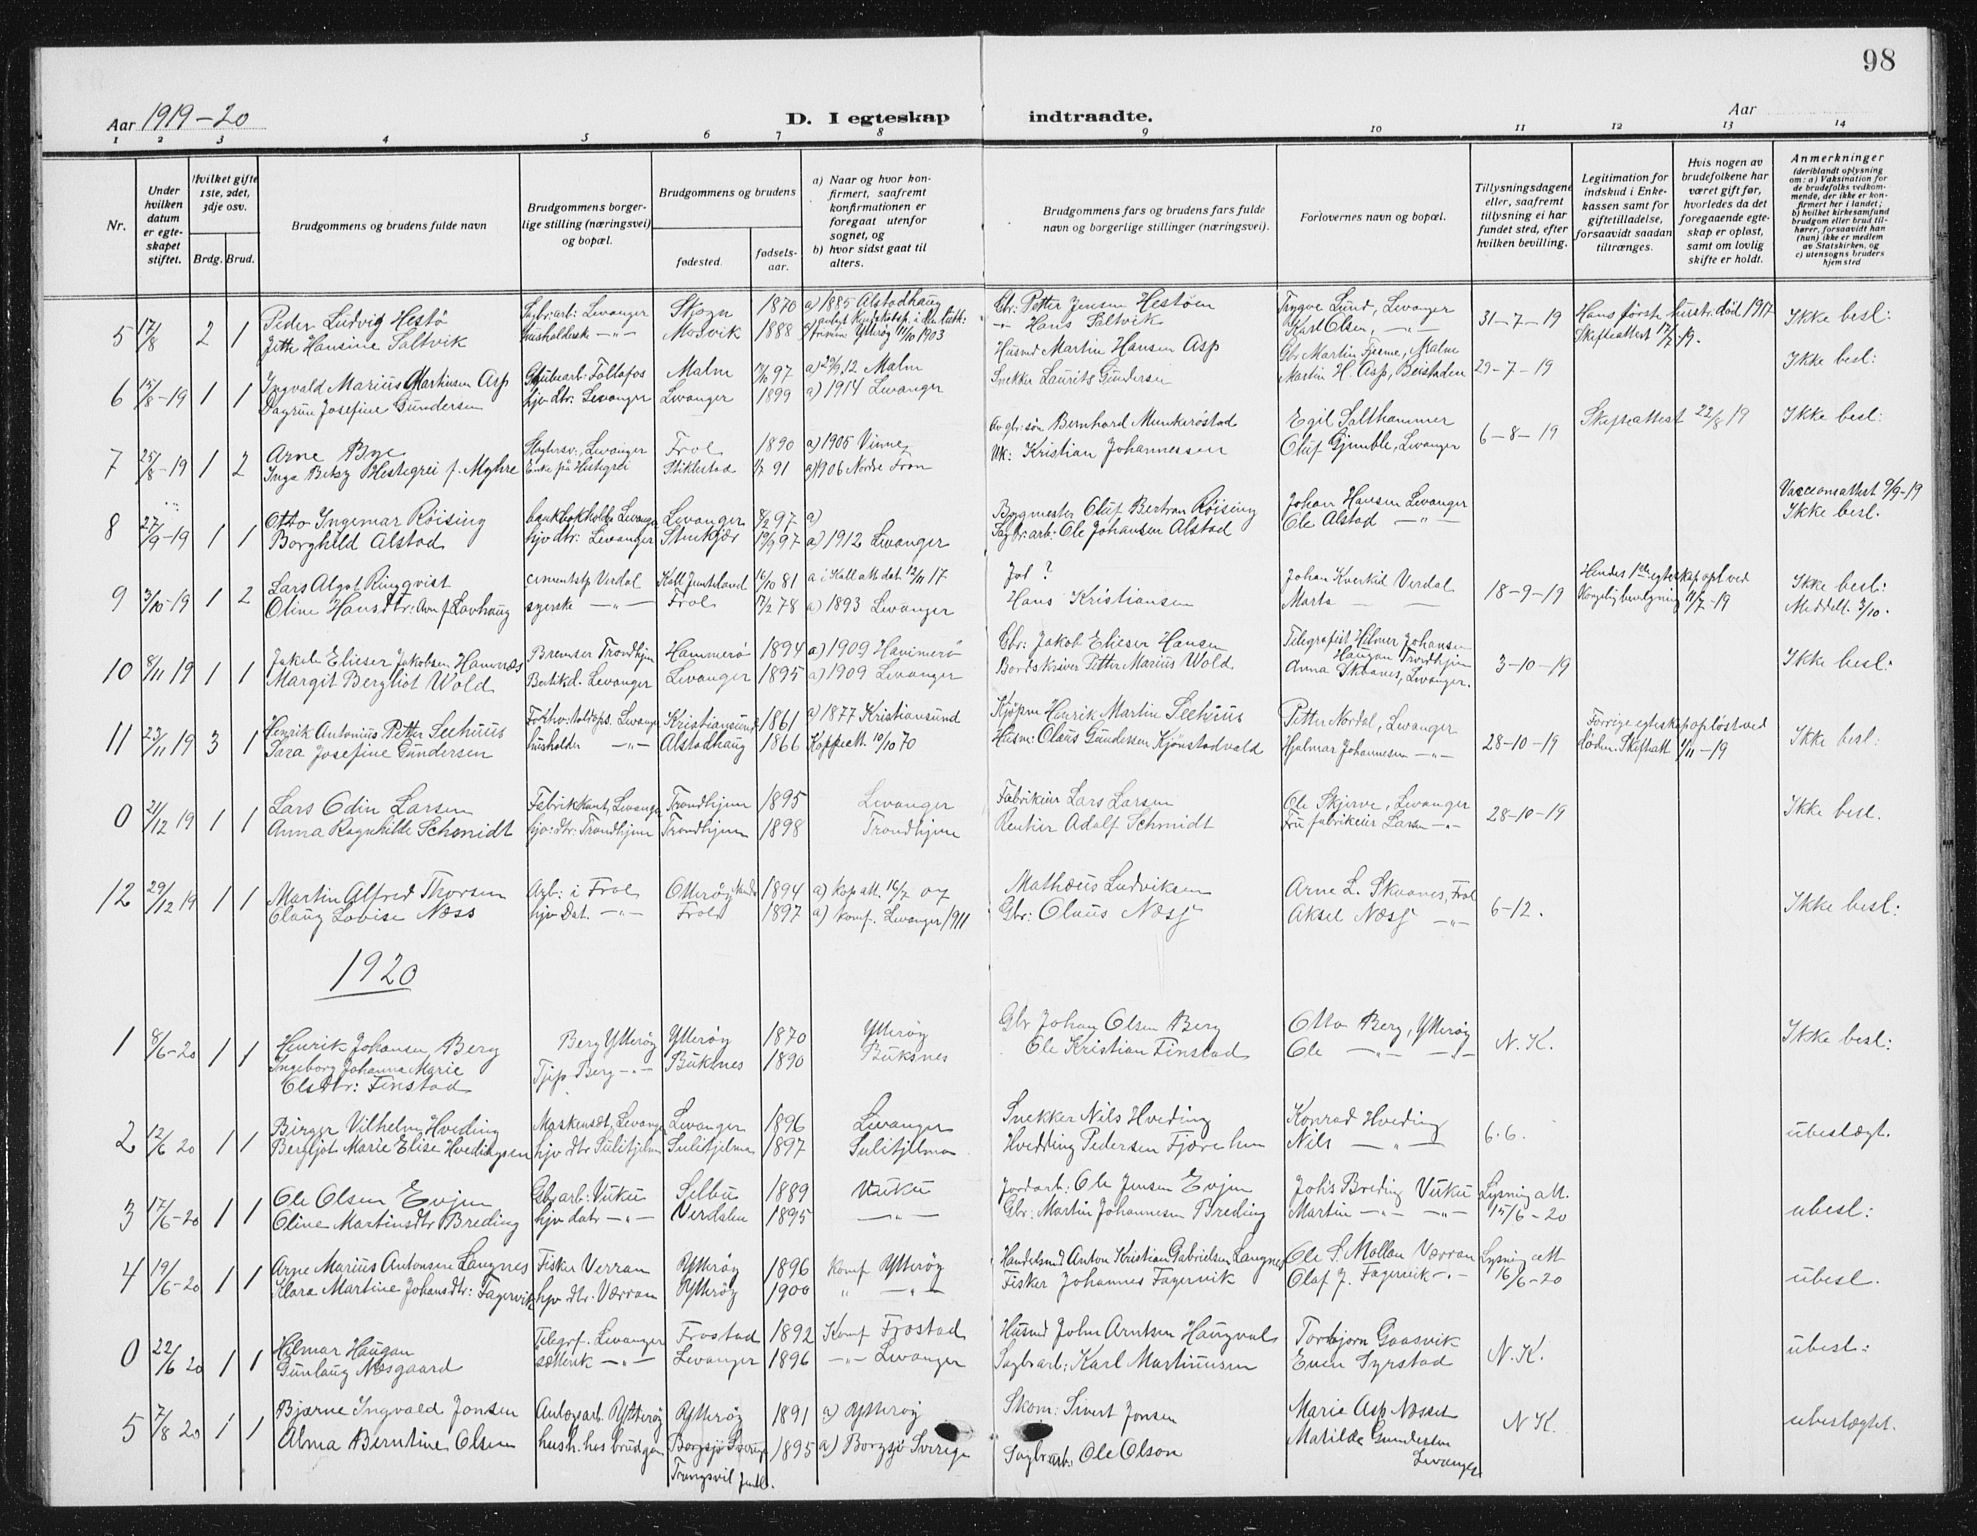 98
Aar 1919-20
D. I egteskap indtraadte.
Aar
1 2 3 4 5 6 7 8 9 10 11 12 13 14
Nr.
Under hvilken datum er egteskapet stiftet.
Hvilket gifte 1ste, 2det, 3dje osv.
Brdg. Brud.
Brudgommens og brudens fulde navn
Brudgommens borgerlige stilling (næringsvei) og bopæl.
Brudgommens og brudens
fødested.
fødselsaar.
a) Naar og hvor konfirmert, saafremt konfirmationen er foregaat utenfor sognet, og
b) hvor sidst gaat til alters.
Brudgommens fars og brudens fars fulde navn og borgerlige stillinger (næringsvei).
Forlovernes navn og bopæl.
Tillysningsdagene eller, saafremt tillysning ei har fundet sted, efter hvilken bevilling.
Legitimation for indskud i Enkekassen samt for giftetilladelse, forsaavidt saadan tiltrænges.
Hvis nogen av brudefolkene har været gift før, hvorledes da det foregaaende egteskap er opløst, samt om lovlig skifte er holdt.
Anmerkninger (deriblandt oplysning om: a) Vaksination for de brudefolks vedkommende, der ikke er konfirmert her i landet; b) hvilket kirkesamfund brudgom eller brud tilhører, forsaavidt han (hun) ikke er medlem av Statskirken, og c) utensogns bruders hjemsted
5 17/8 2 1 Peder Ludvig Hestö Sagbr:arb: Levanger Skogn 1870 a) 1885 Alstadhaug Gbr: Petter Jensen Hestöen Trygve Lund, Levanger 31-7-19 Hans første hustr. død 1917 Ikke besl:
Jette Hansine Saltvik -"- Mosvik 1888 Ytterøy 11/10 1903 -"- Hans Saltvik Karl Olsen, -"- Skifteattest 17/7-19.
6 15/8-19 1 1 Ingvald Marius Martinsen Asp Grubearb: Follafos Malm 97 a) 29/9 12 Malm Husmd Martin Hansen Asp Gbr Martin Fjesme, Malm 29-7-19 Ikke besl:
Dagrun Josefine Gundersen hjv dtr: Levanger Levanger 1899 a) 1914 Levanger Snekker Laurits Gundersen Martin H. Asp, Beistaden
7 25/8-19 1 2 Arne Bye Levanger Frol 1890 a) 1905 Vinne Bernhard Munkeröstad Egil Salthammer 6-8-19 Skifteattest 22/8 19 Ikke besl:
Inga Betzy Hestegrei f. Myhre Enke fra Hestegrei Stiklestad 91 a) 1906 Nordre Fron Kristian Johannessen Oluf Gjemble, Levanger
8 27/9-19 1 1 Otto Ingemar Röising bankbokholder Levanger Levanger 8/2 97 a) Bygmester Oluf Bertran Röising Johan Hansen Levanger Vaccionsattest 9/9-19
Borghild Alstad hjv dtr: Levanger Stenkjær 19/9 97 a) 1912 Levanger Sagbr:arb: Ole Johansen Alstad Ole Alstad -"- Ikke besl.
9 3/10-19 1 2 Lars Algot Ringqvist cementstp Verdal Kall Jemtland 16/10 81 a i Kall att dat 12/11 17 Johan Kverkid Verdal 18-9-19 Hendes 1ste egteskap opl ved Ikke besl:
Oline Hansdtr: syerske -"- Frol 17/2 78 a) 1893 Levanger Hans Kristiansen Marta Kongelig bevilgning 11/7-19 Meddelt. 3/10.
10 8/11 19 1 1 Jakob Elieser Jakobsen Hamnæs Bremser Trondhjem Hammerö 1894 a) 1909 Hammerö Gbr: Jakob Elieser Hansen Telegrafist Hilmer Johansen 3-10-19 Ikke besl:
Margit Bergliot Wold Butikd. Levanger Levanger 1895 a) 1909 Levanger Bordskriver Petter Marius Wold Haugan Trondhjem
Anna Skaanes, Levanger.
11 22/11 19 3 1 Henrik Antonius Petter Seehuus Levanger Kristiansund 1861 a) 1877 Kristiansund Kjöpm Henrik Martin Seehuus Petter Nordal, Levanger 28-10-19 Forrige egteskap oplöst ved Ikke besl:
Sara Josefine Gundersen husholder -"- Alstadhaug 1866 Koppeatt 10/10 70 Husm: Claus Gundersen Kjönstadvald Hjalmar Johannesen -"- döden. Skifteatt 1/11-19
0 21/12 19 1 1 Lars Odin Larsen Fabrikkant, Levanger Trondhjem 1895 Levanger Fabrikeier Lars Larsen Ole Skjerve, Levanger 28-10-19 Ikke besl.
Anna Ragnhilde Schmidt hjv: dtr: Trondhjem Trondhjem 1898 Trondhjem Rentier Adolf Schmidt Fru fabrikeier Larsen -"-
12 29/12 19 1 1 Martin Alfred Thorsen Agb: i Frol Otterøy Namd. 1894 a) kop att. 16/7 07 Mathæus Ludviksen Arne L. Skaanes, Frol 6-12. Ikke besl:
Claug Lovise Næss hjv Dat. -"- Frol 1897 a) konf. Levanger 1911 Gbr: Claus Næss Aksel Næss -"-
1920
1 8/6-20 1 1 Henrik Johansen Berg Berg Ytterøy Ytterøy 1870 Ytterøy Gbr Johan Olsen Berg Otto Berg, Ytterøy N.K. Ikke besl:
Ingeborg Johanna Marie Tjip. Berg -"- Buksnes 1890 Buksnes Ole Kristian Finstad Ole -"- -"-
Olsdtr: Finstad
2 12/6 20 1 1 Birger Vilhelm Hveding Levanger Levanger 1896 Levanger Snekker Nils Hveding Konrad Hveding 6.6. ubeslægt.
Bergljot Marie Elise Hvedingsen hjv dtr Sulitjelma Sulitjelma 1897 Sulitjelma Hvedding Pedersen Nils -"-
3 17/6-20 1 1 Ole Olsen Evjen Gbr arb: Vuku Selbu 1889 Vuku Jordarb: Ole Jensen Evjen Johs Breding Vuku Lysning att. ubesl:
Oline Martinsdtr Breding hjv datr -"- Verdalen 1895 -"- Gbr: Martin Johannesen Breding Martin -"- -"- 15/6-20
4 19/6-20 1 1 Arne Marius Antonsen Langnes Fisker Verran Ytterøy 1896 Konf Ytterøy Handelsmd Anton Kristian Gabrielsen Langnes Ole S. Mollan Værran Lysning att ubesl.
Klara Martine Johansdtr: Fagervik hjv dtr: Værran Ytterøy 1900 " -"- Fisker Johannes Fagervik Olaf J. Fagervik -"- 16/6-20
0 22/6 20 1 1 Hilmar Haugan Telegrf. Levanger Frostad 1892 Konf Frostad Husmd John Arntsen Haugval Torbjorn Gaasvik N.K. ubesl:
Gunlaug Næsgaard -"- Levanger 1896 -"- Levanger Sagbr arb: Karl Martinusen Even Syrstad
5 7/8 20 1 1 Bjarne Ingvald Jonsen Ytterøy Ytterøy 1891 a) Ytterøy Skom: Sivert Jonsen Marie Asp Næsset N K. ubeslægtet.
Alma Berntine Olsen hush. hos brudgom Borgsjö Sverige 1895 a) Borgsjö Sverige Sagbr arb: Ole Olson Matilde Gundersen
Levanger